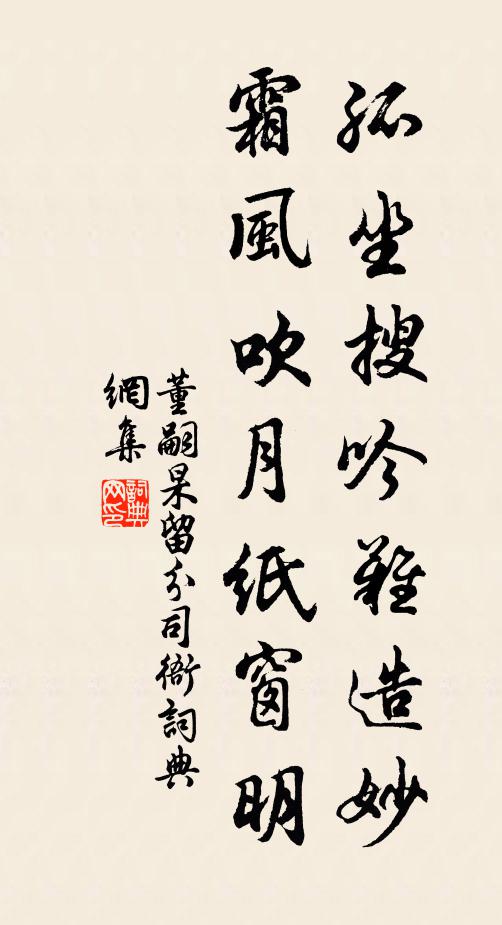 孤坐搜吟難造妙
霜風吹月紙窗明
董嗣杲留分司衙詞典
網集
詞典網印